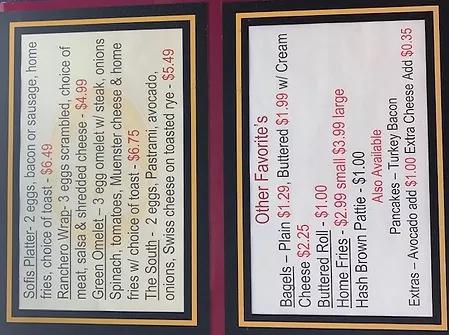 Sofis Platter- 2 eggs, bacon or sausage, home
fries, choice of toast - $6.49
Ranchero Wrap- 3 eggs scrambled, choice of
meat, salsa & shredded cheese - $4.99
Green Omelet – 3 egg omelet w/ steak, onions
Spinach, tomatoes, Muenster cheese & home
fries w/ choice of toast - $6.75
The South - 2 eggs, Pastrami, avocado,
onions, Swiss cheese on toasted rye - $5.49
Other Favorite's
Bagels – Plain $1.29, Buttered $1.99 w/ Cream
Cheese $2.25
Buttered Roll - $1.00
Home Fries - $2.99 small $3.99 large
Hash Brown Pattie - $1.00
Also Available
Pancakes – Turkey Bacon
Extras – Avocado add $1.00 Extra Cheese Add $0.35